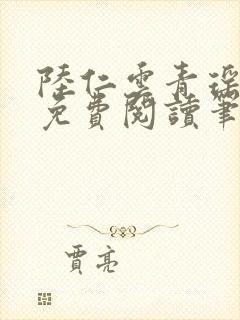 陸仁雲青瑶
免費閱讀筆
賈亮